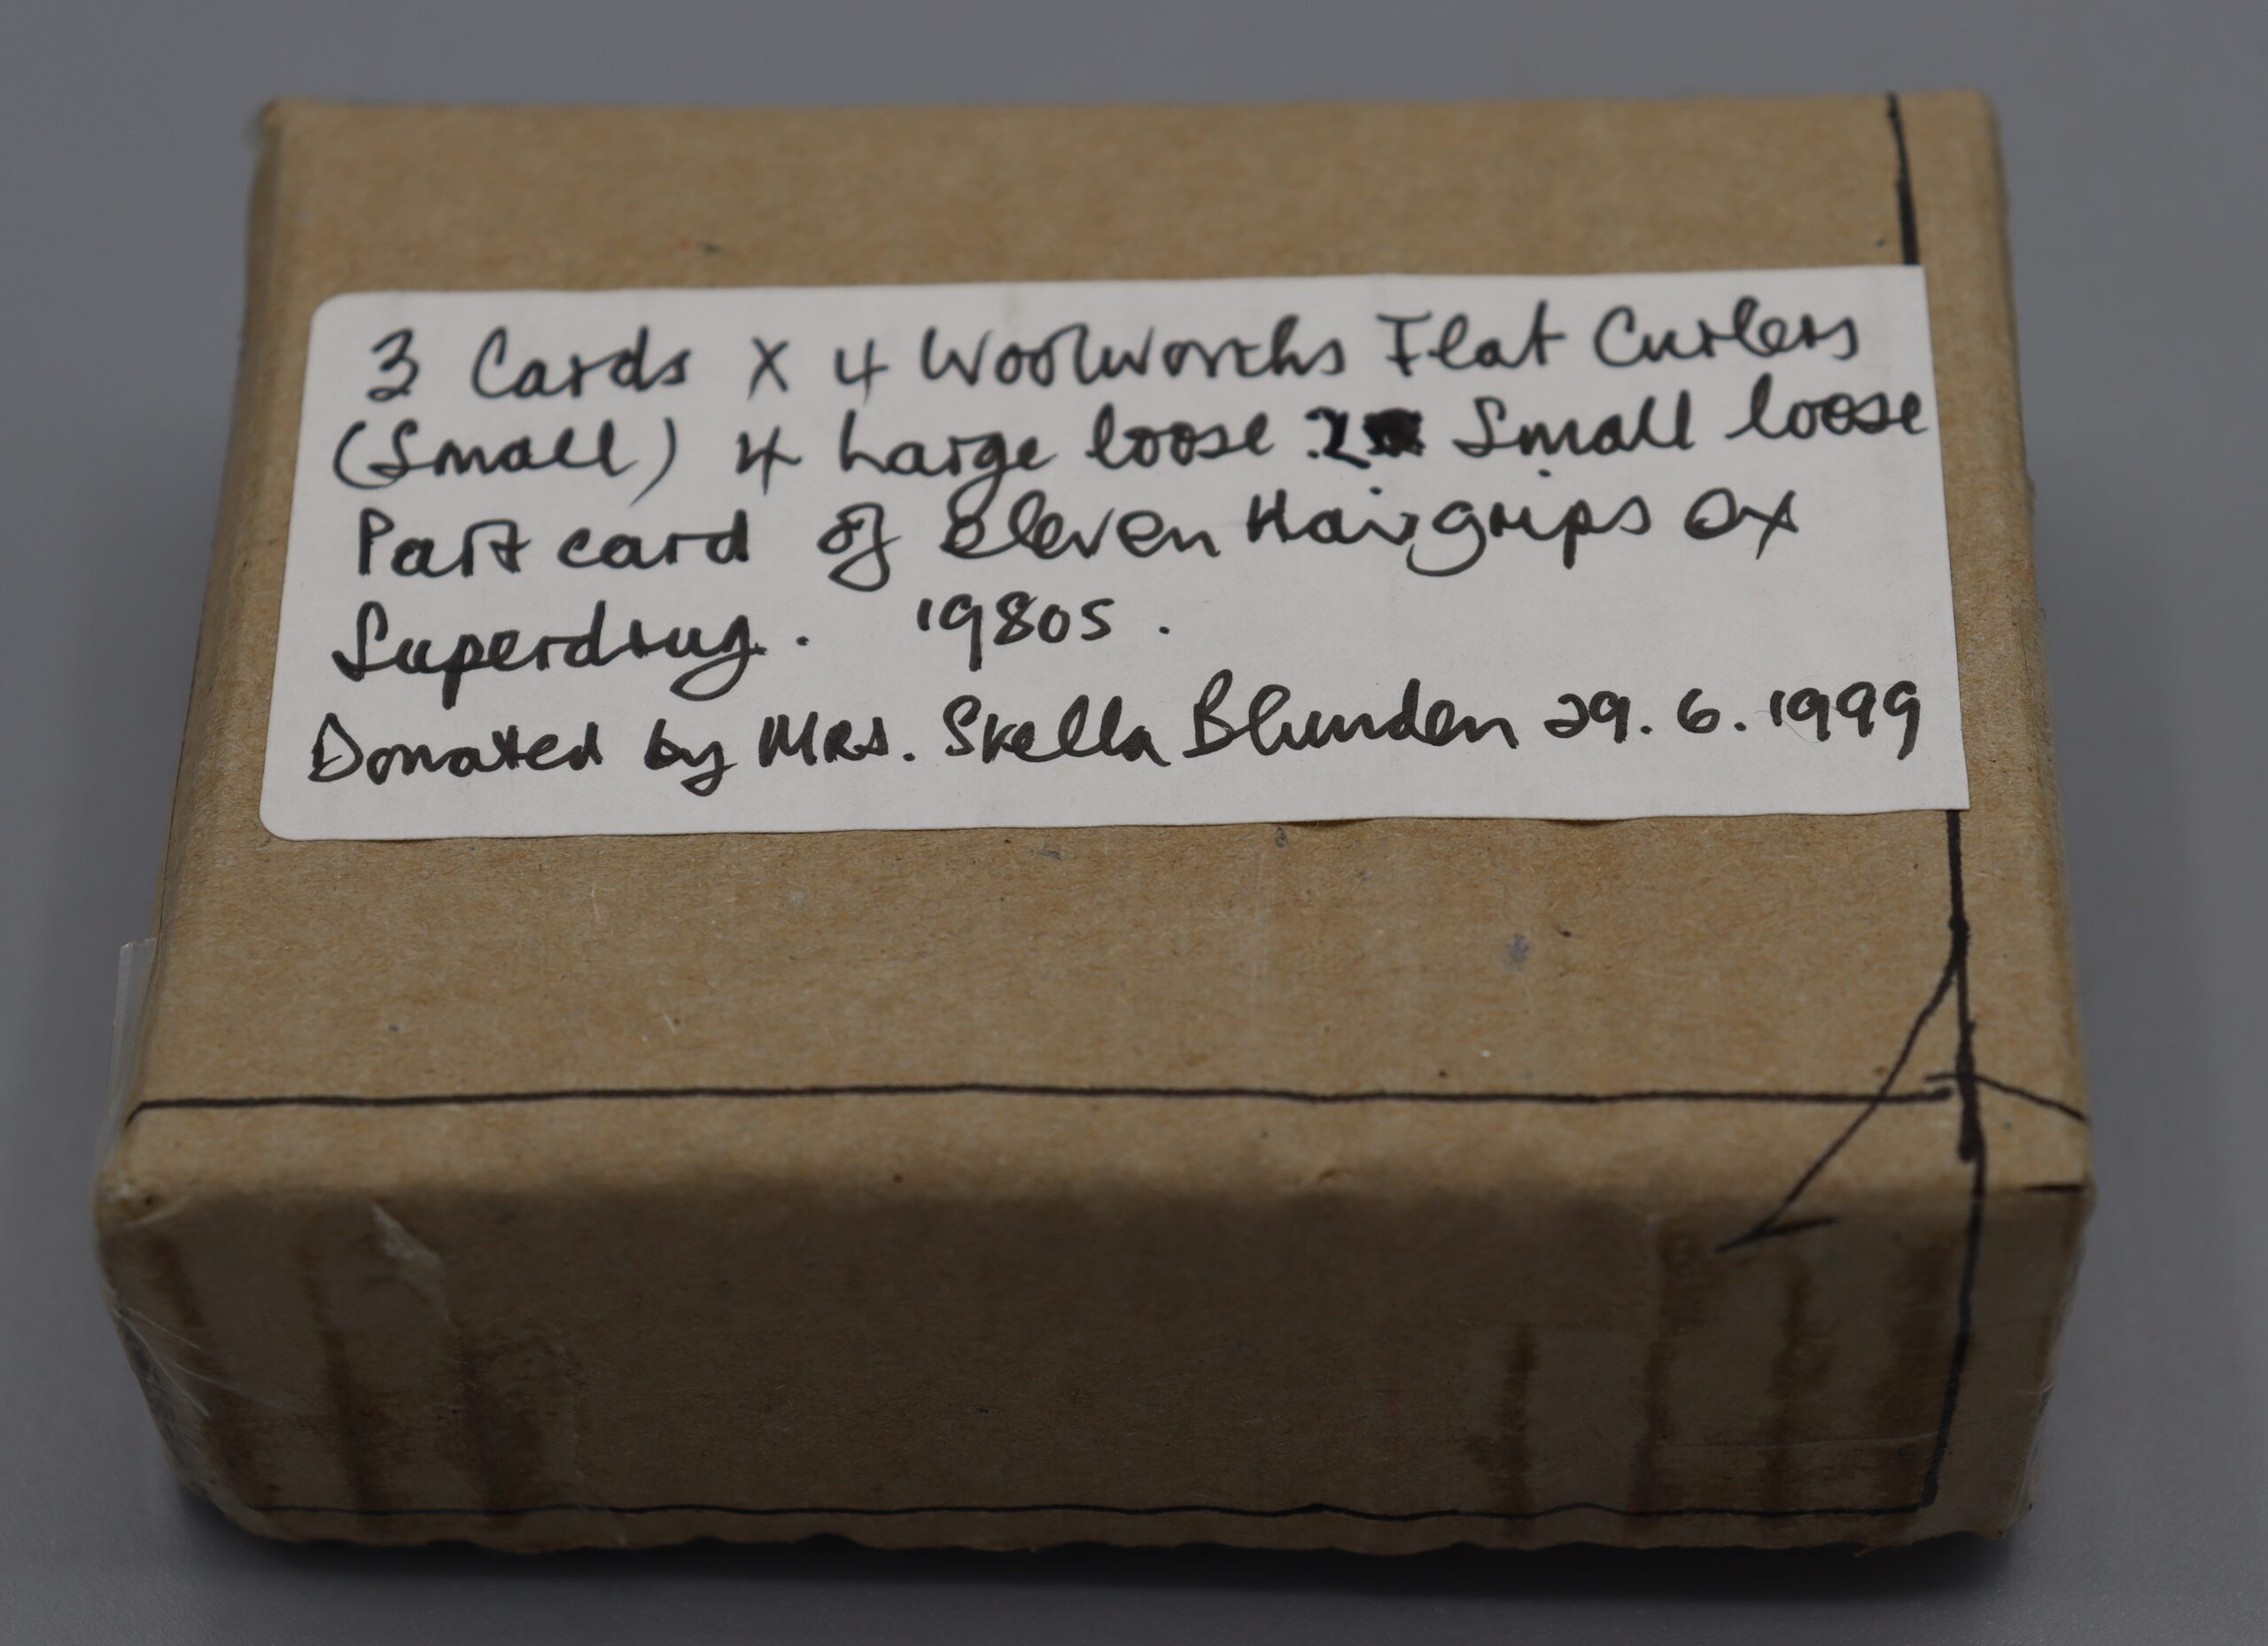 3 Cards X 4 Woolworths Flat Curlers
(Small) 4 Large loose. 2 Small loose
Part card of Eleven Hairgrips Ex
Superdrug. 1980s.
Donated by Mrs. Stella Blunden 29.6.1999